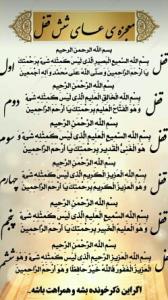 معجزه ی دعای شش قفل
بسم الله الرحمن الرحیم
قفل اول
بسم الله السمیع البصیر الذی لیس کمثله شیء برحمتک
یا ارحم الراحمین و صلی الله علی محمد و اله اجمعین
بسم الله الرحمن الرحیم
قفل دوم
بسم الله الخالق العلیم الذی لیس کمثله شیء
و هو الفتاح العلیم برحمتک یا ارحم الراحمین
بسم الله الرحمن الرحیم
قفل سوم
بسم الله السمیع العلیم الذی لیس کمثله شیء و
هو الغنی القدیر برحمتک یا ارحم الراحمین
بسم الله الرحمن الرحیم
قفل چهارم
بسم الله العزیز الکریم الذی لیس کمثله شیء
و هو العزیز الکریم برحمتک یا ارحم الراحمین
بسم الله الرحمن الرحیم
قفل پنجم
بسم الله السمیع العلیم الذی لیس کمثله شیء
و هو برحمتک یا ارحم الراحمین
بسم الله الرحمن الرحیم
قفل ششم
بسم الله العزیز الرحیم الذی لیس کمثله شیء و هو
العزیز الغفور فالله خیر حافظا و هو ارحم الراحمین
اگر این ذکر خونده بشه و همراهت باشه..